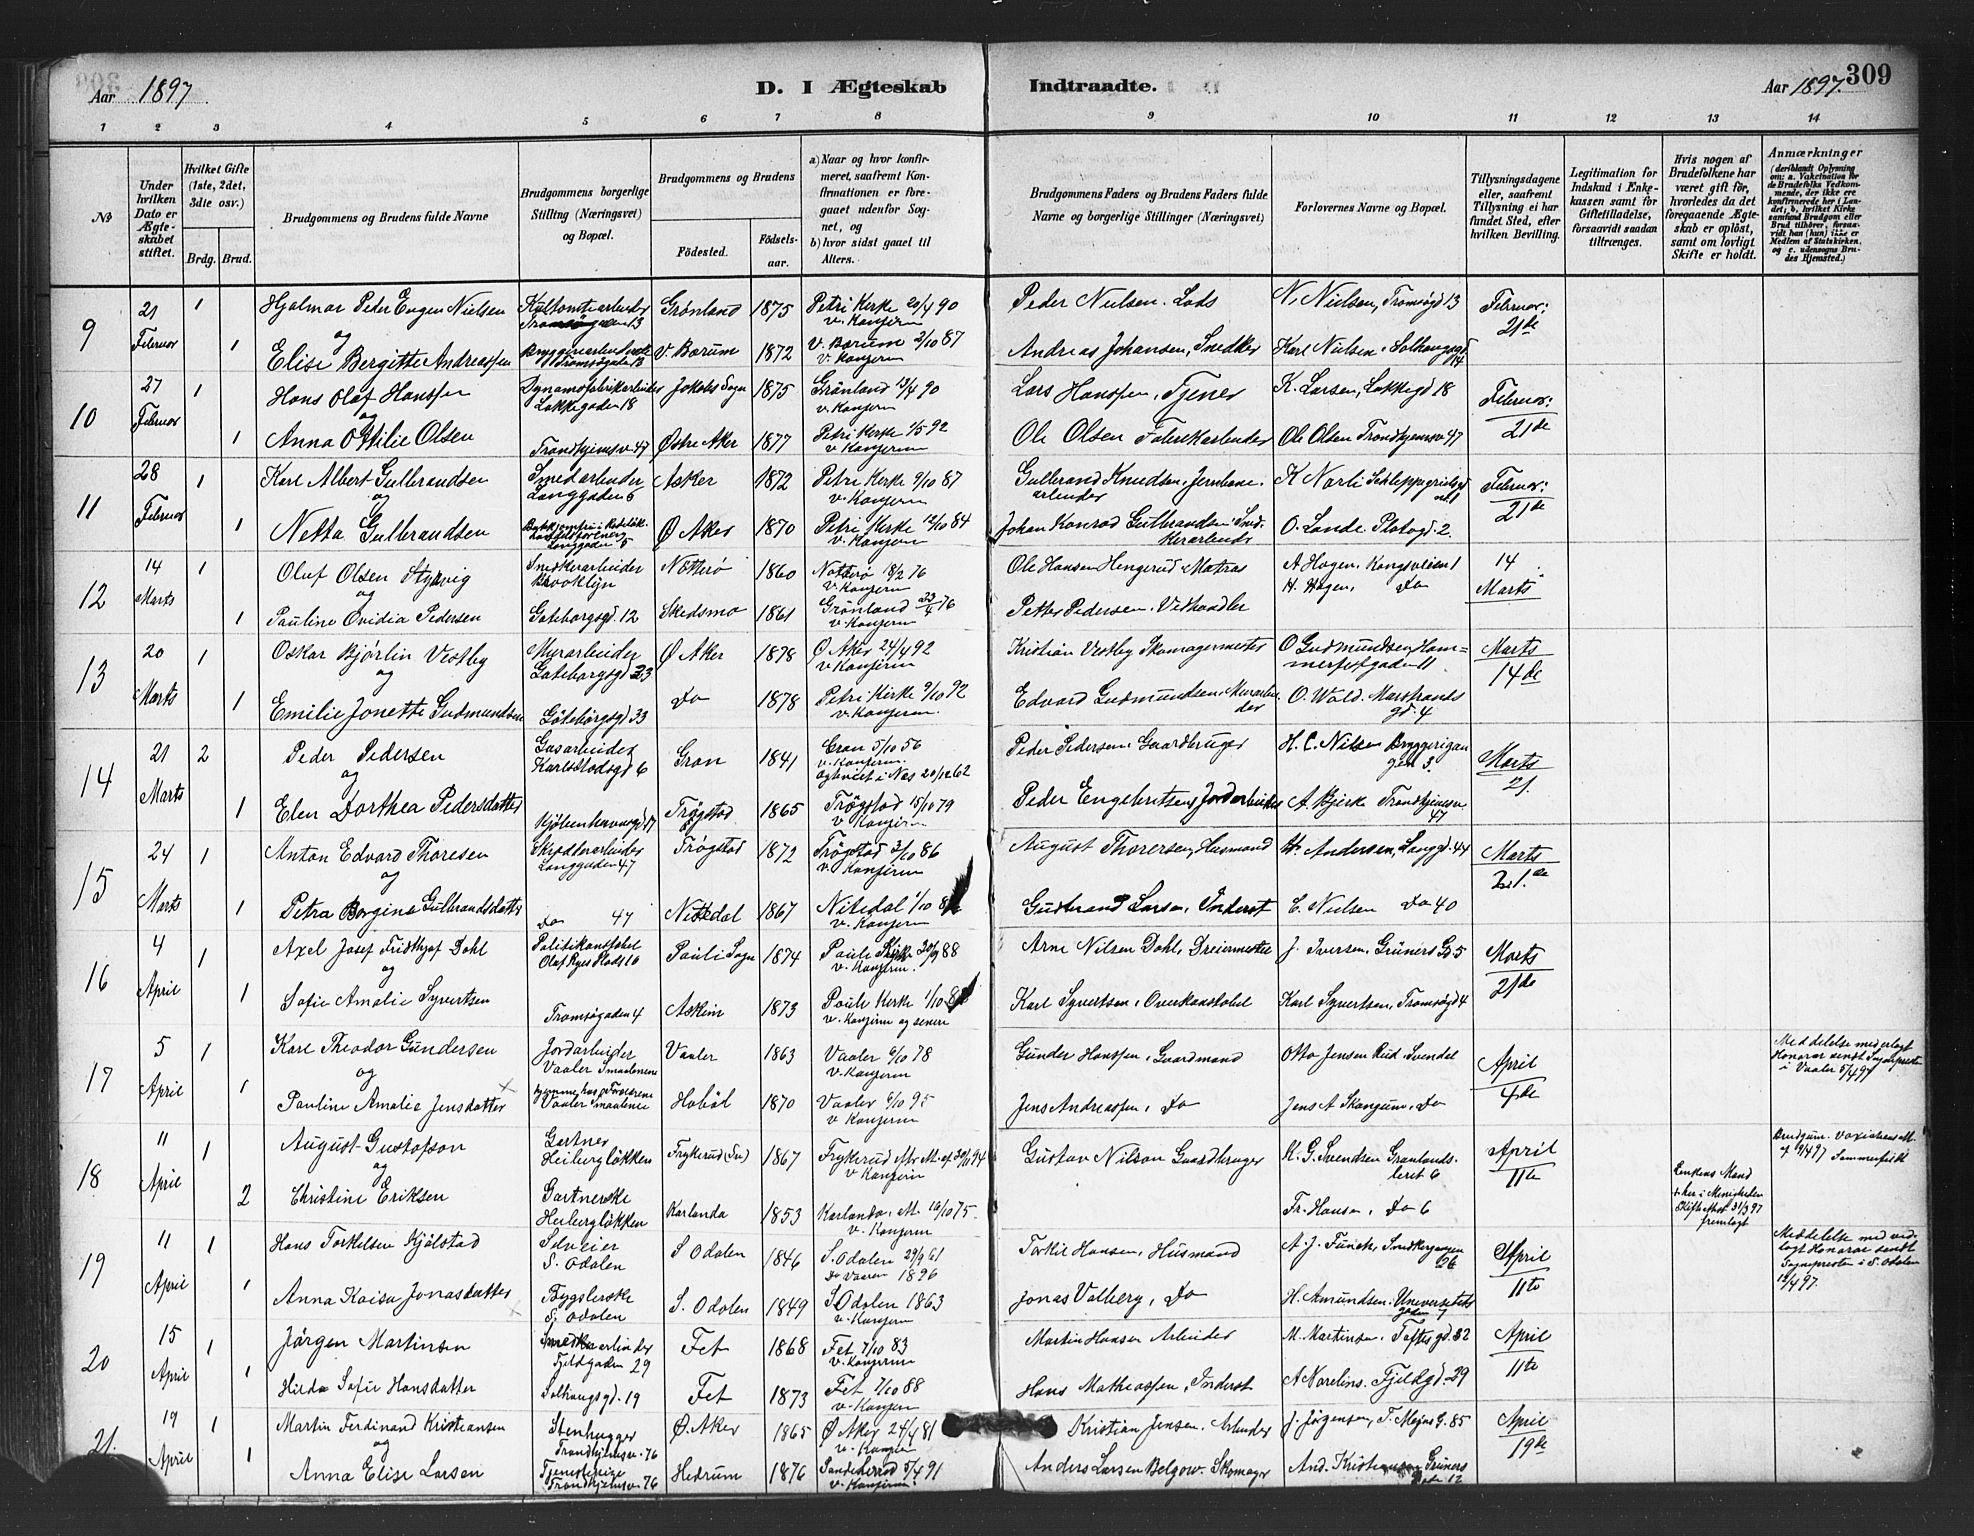 Aar 1897
D. I Ægteskab
Indtraadte.
Aar 1897.
309
1 2 3 4 5 6 7 8 9 10 11 12 13 14
№
Under hvilken Dato er Ægteskabet stiftet.
Hvilket Gifte (1ste, 2det, 3dte osv.)
Brdg. Brud.
Brudgommens og Brudens fulde Navne
Brudgommens borgerlige Stilling (Næringsvei) og Bopæl.
Brudgommens og Brudens
Fødested.
Fødselsaar.
a) Naar og hvor konfirmeret, saafremt Konfirmationen er foregaaet udenfor Sognet, og
b) hvor sidst gaaet til Alters.
Brudgommens Faders og Brudens Faders fulde Navne og borgerlige Stillinger (Næringsvei)
Forlovernes Navne og Bopæl.
Tillysningsdagene eller, saafremt Tillysning ei har fundet Sted, efter hvilken Bevilling.
Legitimation for Indskud i Enkekassen samt for Giftetilladelse, forsaavidt saadan tiltrænges.
Hvis nogen af Brudefolkene har været gift før, hvorledes da det foregaaende Ægteskab er opløst, samt om lovligt Skifte er holdt.
Anmærkninger
(deriblandt Oplysning om: a. Vakcination for de Brudefolks Vedkommende, der ikke ere konfirmerede her i Landet; b. hvilket Kirkesamfund Brudgom eller Brud tilhører, forsaavidt han (hun) ikke er Medlem af Statskirken, og c. udensogns Brudes Hjemsted.)
9 21 Februar 1 Hjalmar Peder Eugen Nielsen Tromsøgaden 13 Grønland 1875 Petri Kirke 20/4 90 v. Konfirm Peder Nielsen. Lods N. Nielsen, Tromsøgd 13 Februar: 21de
og
1 Elise Bergitte Andreassen Tromsøgade 13 V. Bærum 1872 V. Bærum 2/10 87 v. Konfirm Andreas Johansen, Snedker Karl Nielsen, Solhaugsgd 14
10 27 Februar 1 Hans Olaf Hanssen Dynamofabrikarbeider Lakkegaden 18 Jakobs Sogn 1875 Grønland 13/4 90 v. Konfirm Lars Hanssen, Tjener K. Larsen, Lakkegd 18 Februar: 21de
og
1 Anna Ottilie Olsen Trondhjemsv. 47 Østre Aker 1877 Petri Kirke 1/5 92 v. Konfirm Ole Olsen Fabrekarbeider Ole Olsen Trondhjemsv. 47
11 28 Februar 1 Karl Albert Gulbrandsen Smedarbeider Langgaden 5 Asker 1872 Petri Kirke 9/10 87 v. Konfirm Gulbrand Knudsen, Jernbanearbeider K Norli Schleppegrelsgd Februar: 21de
og
1 Netta Gulbrandsen Langgaden 5 Ø Aker 1870 Petri Kirke 12/10 84 v. Konfirm Johan Konrad Gulbrandsen Snedkerarbeider O. Lande. Platogd. 2.
12 14 Marts 1 Oluf Olsen Styrvig Snedkerarbeider Brooklyn Nøtterø 1860 Nøtterø 18/2 76 v. Konfirm Ole Hansen Hengerud Matros A Hagen, Kongsveien 1 14 Marts
og
1 Pauline Ovidia Pedersen Gøteborgsgd. 12 Skedsmo 1861 Grønland 23/4 76 v. Konfirm Petter Pedersen. Vedhandler H. Hagen, Do
13 20 Marts 1 Oskar Bjørlin Vestby Murarbeider Gøteborgsgd 33 Ø Aker 1878 Ø Aker 24/4 92 v Konfirm Kristian Vestby Skomagermester O Gudmundsen, Hammerfestgaden 11 Marts 14de
og
1 Emilie Jonette Gudmundsen Gøteborgsgd 33 Do 1878 Petri Kirke 9/10 92 v. Konfirm. Edvard Gudmundsen. Murarbeider O. Wold. Marstrandsgd. 4
14 21 Marts 2 Peder Pedersen Gasarbeider Karlstadsgd 6 Gran 1841 Gran 5/10 56 v. Konfirm. Ogsaa i Næs 20/12 62 Peder Pedersen. Gaardbruger H. C. Nilsen Bryggerigangen 3. Marts 21
og
1 Elen Dorthea Pedersdatter Kjøbenhavnsgd 17 Trøgstad 1865 Trøgstad 15/10 79 v Konfirm Peder Engebretsen, Jordarbeider A. Bjerke Trondhjemsv. 47
15 24 Marts 1 Anton Edvard Thoresen Langgaden 47 Trøgstad 1872 Trøgstad 3/10 86 v. Konfirm August Thoresen, Husmand W. Andersen, Langgd. 44 Marts 21.de
og
1 Petra Borgine Gulbrandsdatter Do 47 Nitedal 1867 Nitedal 1/10 v. Konfirm Gudbrand Larsen, Inderst C. Nielsen Do 40
16 4 April 1 Axel Josef Fridthjof Dahl Politikonstabel Olaf Ryes Plads 10 Pauli Sogn 1874 Pauli Kirke 30/9 88 v. Konfirm. Arne Nilsen Dahl, Dreiermester J. Iversen, Grüners Gd 5 Marts 21de
og
1 Sofie Amalie Syvertsen Tromsøgaden 4 Askim 1873 Pauli Kirke 1/10 v. Konfirm og senere Karl Syvertsen, Overkonstabel Karl Syvertsen, Tromsøgd 4
17 5 April 1 Karl Theodor Gundersen Jordarbeider Vaaler Smaalenene Vaaler 1863 Vaaler 6/10 78 v. Konfirm Gunder Hanssen, Gaardmand Otto Jensen Rud, Svendal April 4de Meddelelse med erlagt Honorar sendt Sognepresten i Vaaler 5/4 97
og
1 Pauline Amalie Jensdatter × hjemme hos Forældrene Vaaler Smaalenene Hobøl 1870 Vaaler 6/10 95 v Konfirm Jens Andreassen, Do Jens A Skangum. Do
18 11 April 1 August Gustafson Gartner Heibergløkken Frykerud (Sv) 1867 Frykerud Att. af 30/11 94 v Konfirm Gustav Nilson Gaardbruger K. G. Svendsen Grønlandsleret 6 April 11te Brudgom. Vaxinations Att. af 10/4 97 Sommerfeldt
og
2 Christine Eriksen Gartnerske Heibergløkken Karlanda 1853 Karlanda. Att. 10/10 75. v. Konfirm Fr. Hansen, Do 6 Enkens Mand + her i Menigheden Skifteattest 31/3 97 fremlagt
19 11 April 1 Hans Torkelsen Kjølstad Selveier S. Odalen S Odalen 1846 S. Odalen 29/9 61 Do Vaaren 1896 Torkil Hansen, Husmand A. J. Funck, Snedkergangen April 11te Meddelelse med vedlagt Honorar sendt Sognepresten i S. Odalen 12/4 97.
1 Anna Kaisa Jonasdatter × Bygslerske S. Odalen S. Odalen 1849 S Odalen 1863 v. Konfirm Jonas Valberg, Do H. Amundsen. Universitetsgaden 7
20 15 April 1 Jørgen Martinsen Smedarbeider Fjeldgaden 29 Fet 1868 Fet 7/10 83 v. Konfirm Martin Hansen Arbeider M. Martinsen. Toftesgd. 32 April 11te
1 Hilda Sofie Hansdatter Solhaugsgd. 19 Fet 1873 Fet 7/10 88 v. Konfirm Hans Mathiassen, Inderst A Norelius. Fjeldgd. 29
21. 19 April 1 Martin Ferdinand Kristiansen Stenhugger Trondhjemsv. 76 Ø. Aker 1865 Ø Aker 24/4 81 v. Konfirm Kristian Jensen. Arbeider J. Jørgensen, T. Meyers G. 85 April 19de
og
1 Anna Elise Larsen Trondhjemsv. 76 Hedrum 1876 Sandeherred 5/4 91 v. Konfirm. Anders Larsen Belgow. Skomager And. Kristiansen Grüners Gade 12